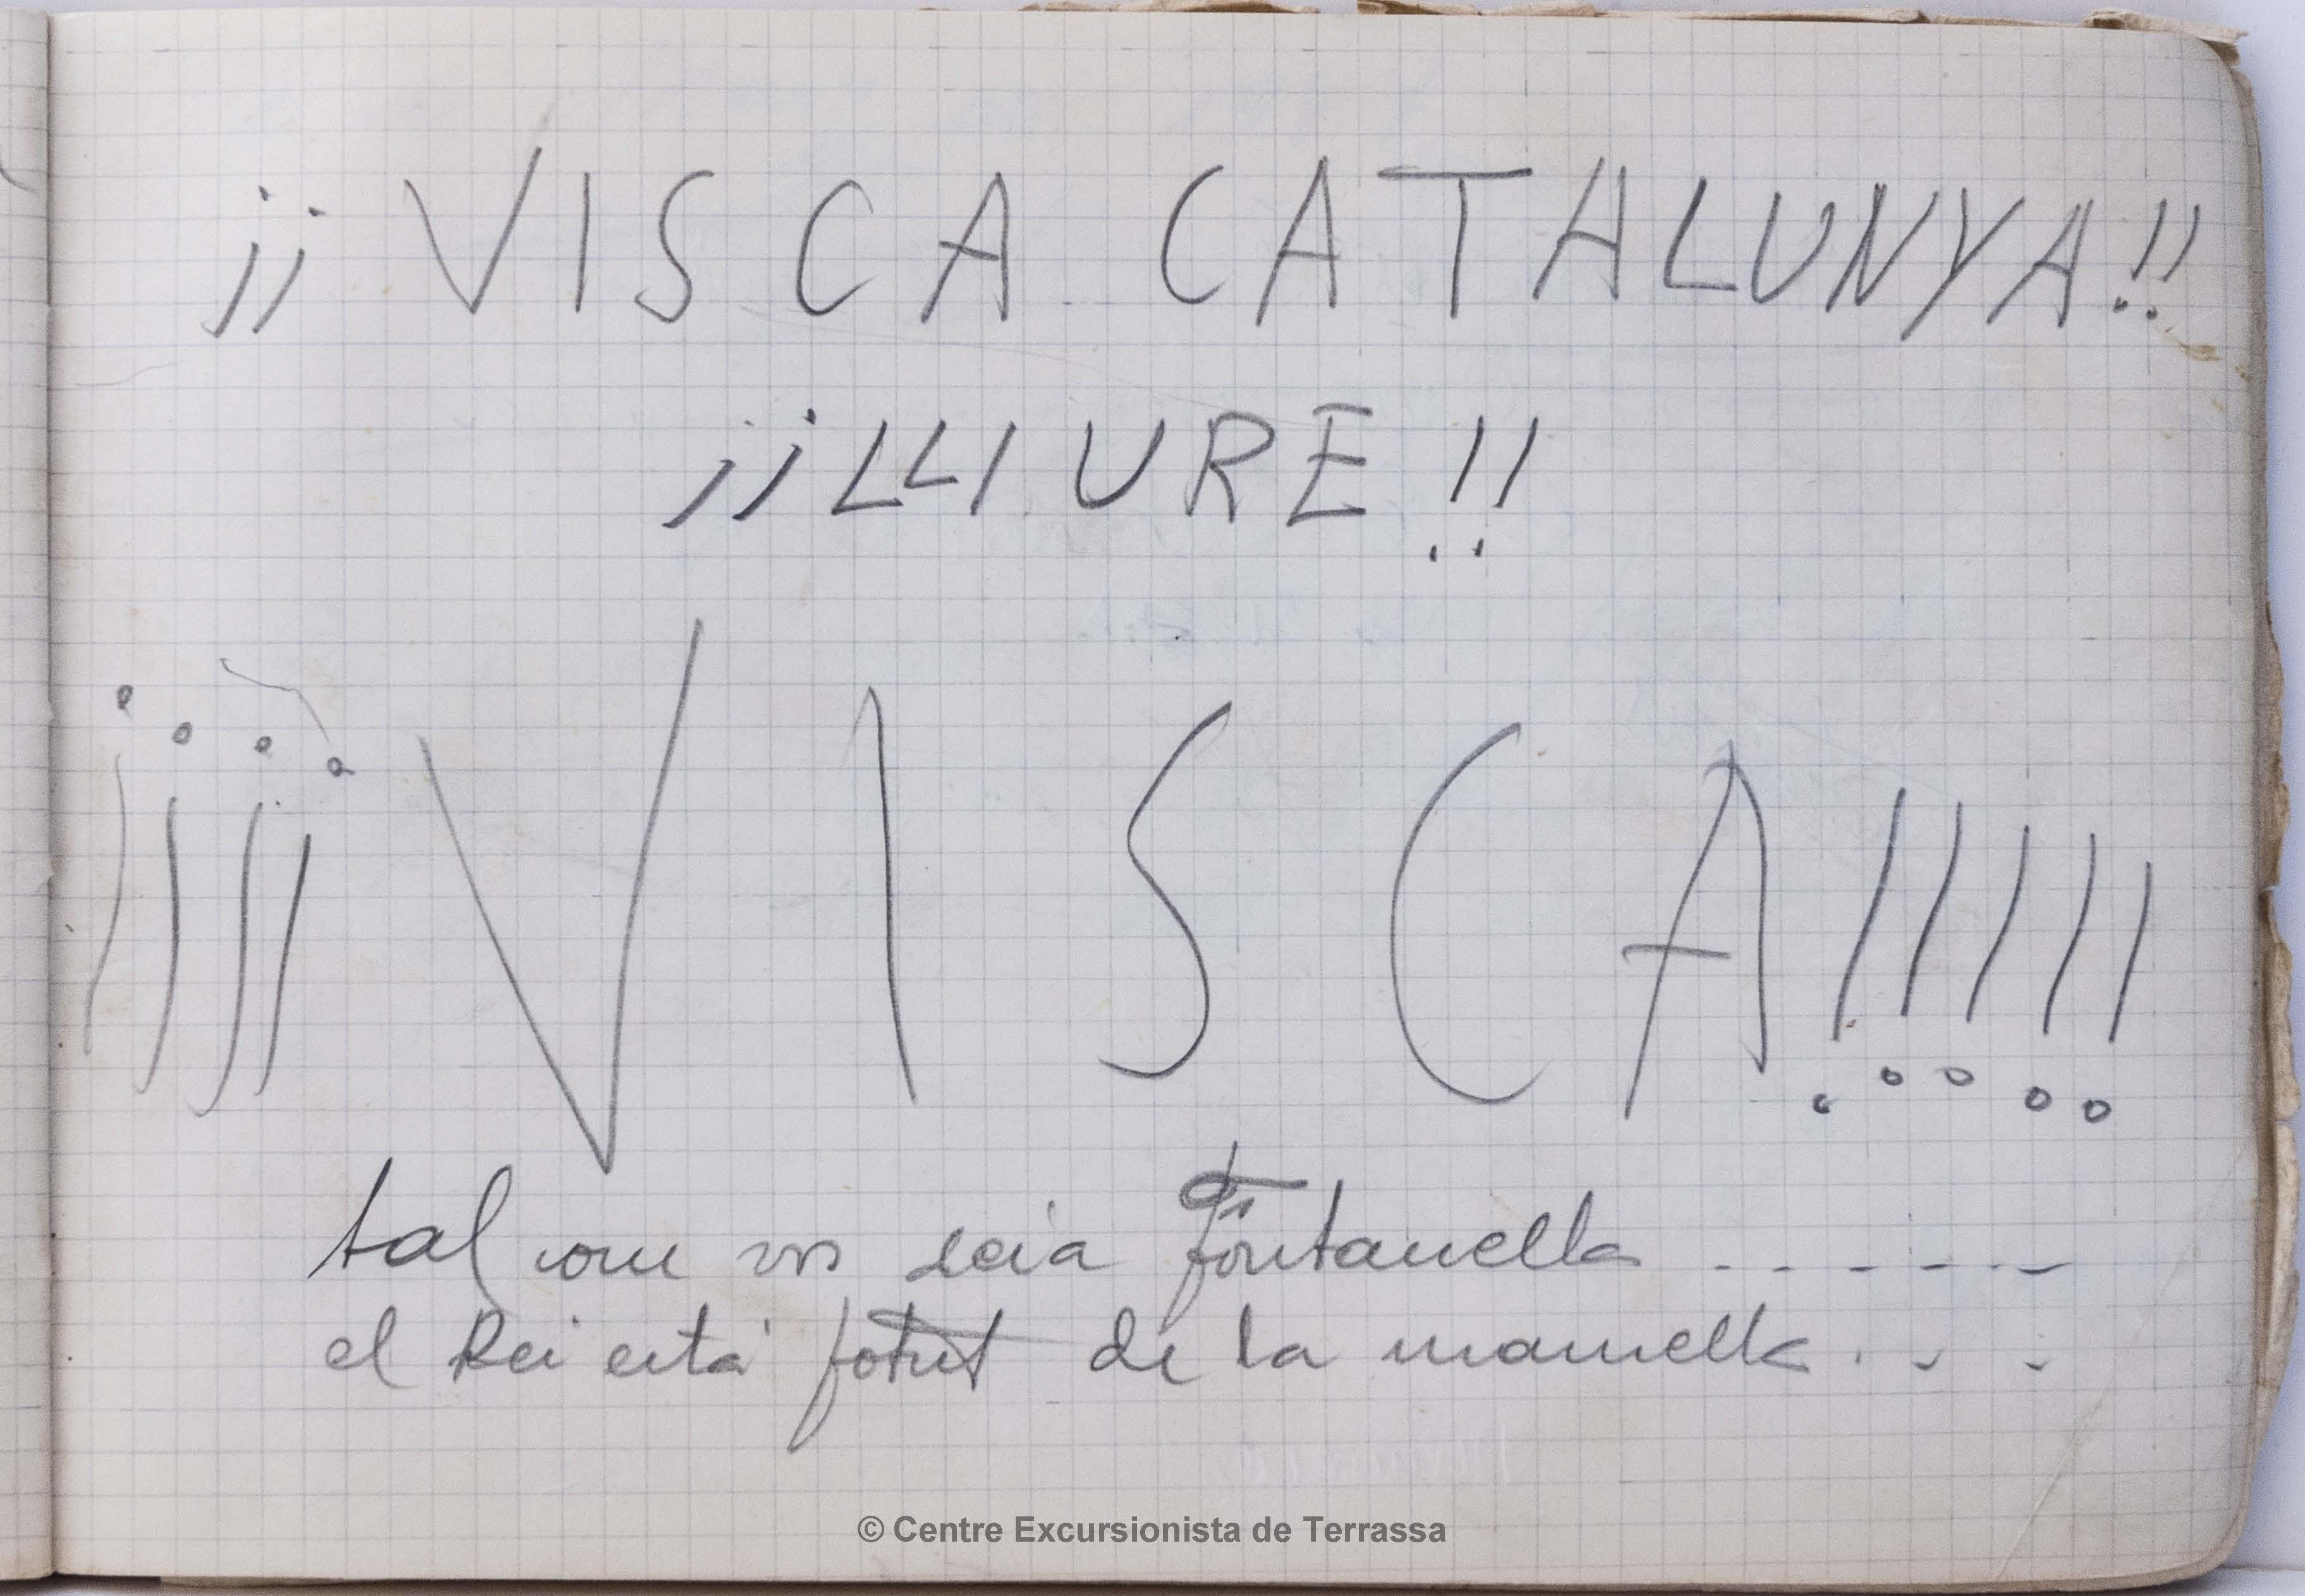 ¡¡VISCA CATALUNYA!!
¡¡LLIURE!!
¡¡¡¡VISCA!!!!!
tal com vos deia fontanella ......
el Rei está fotut de la mamella....
© Centre Excursionista de Terrassa